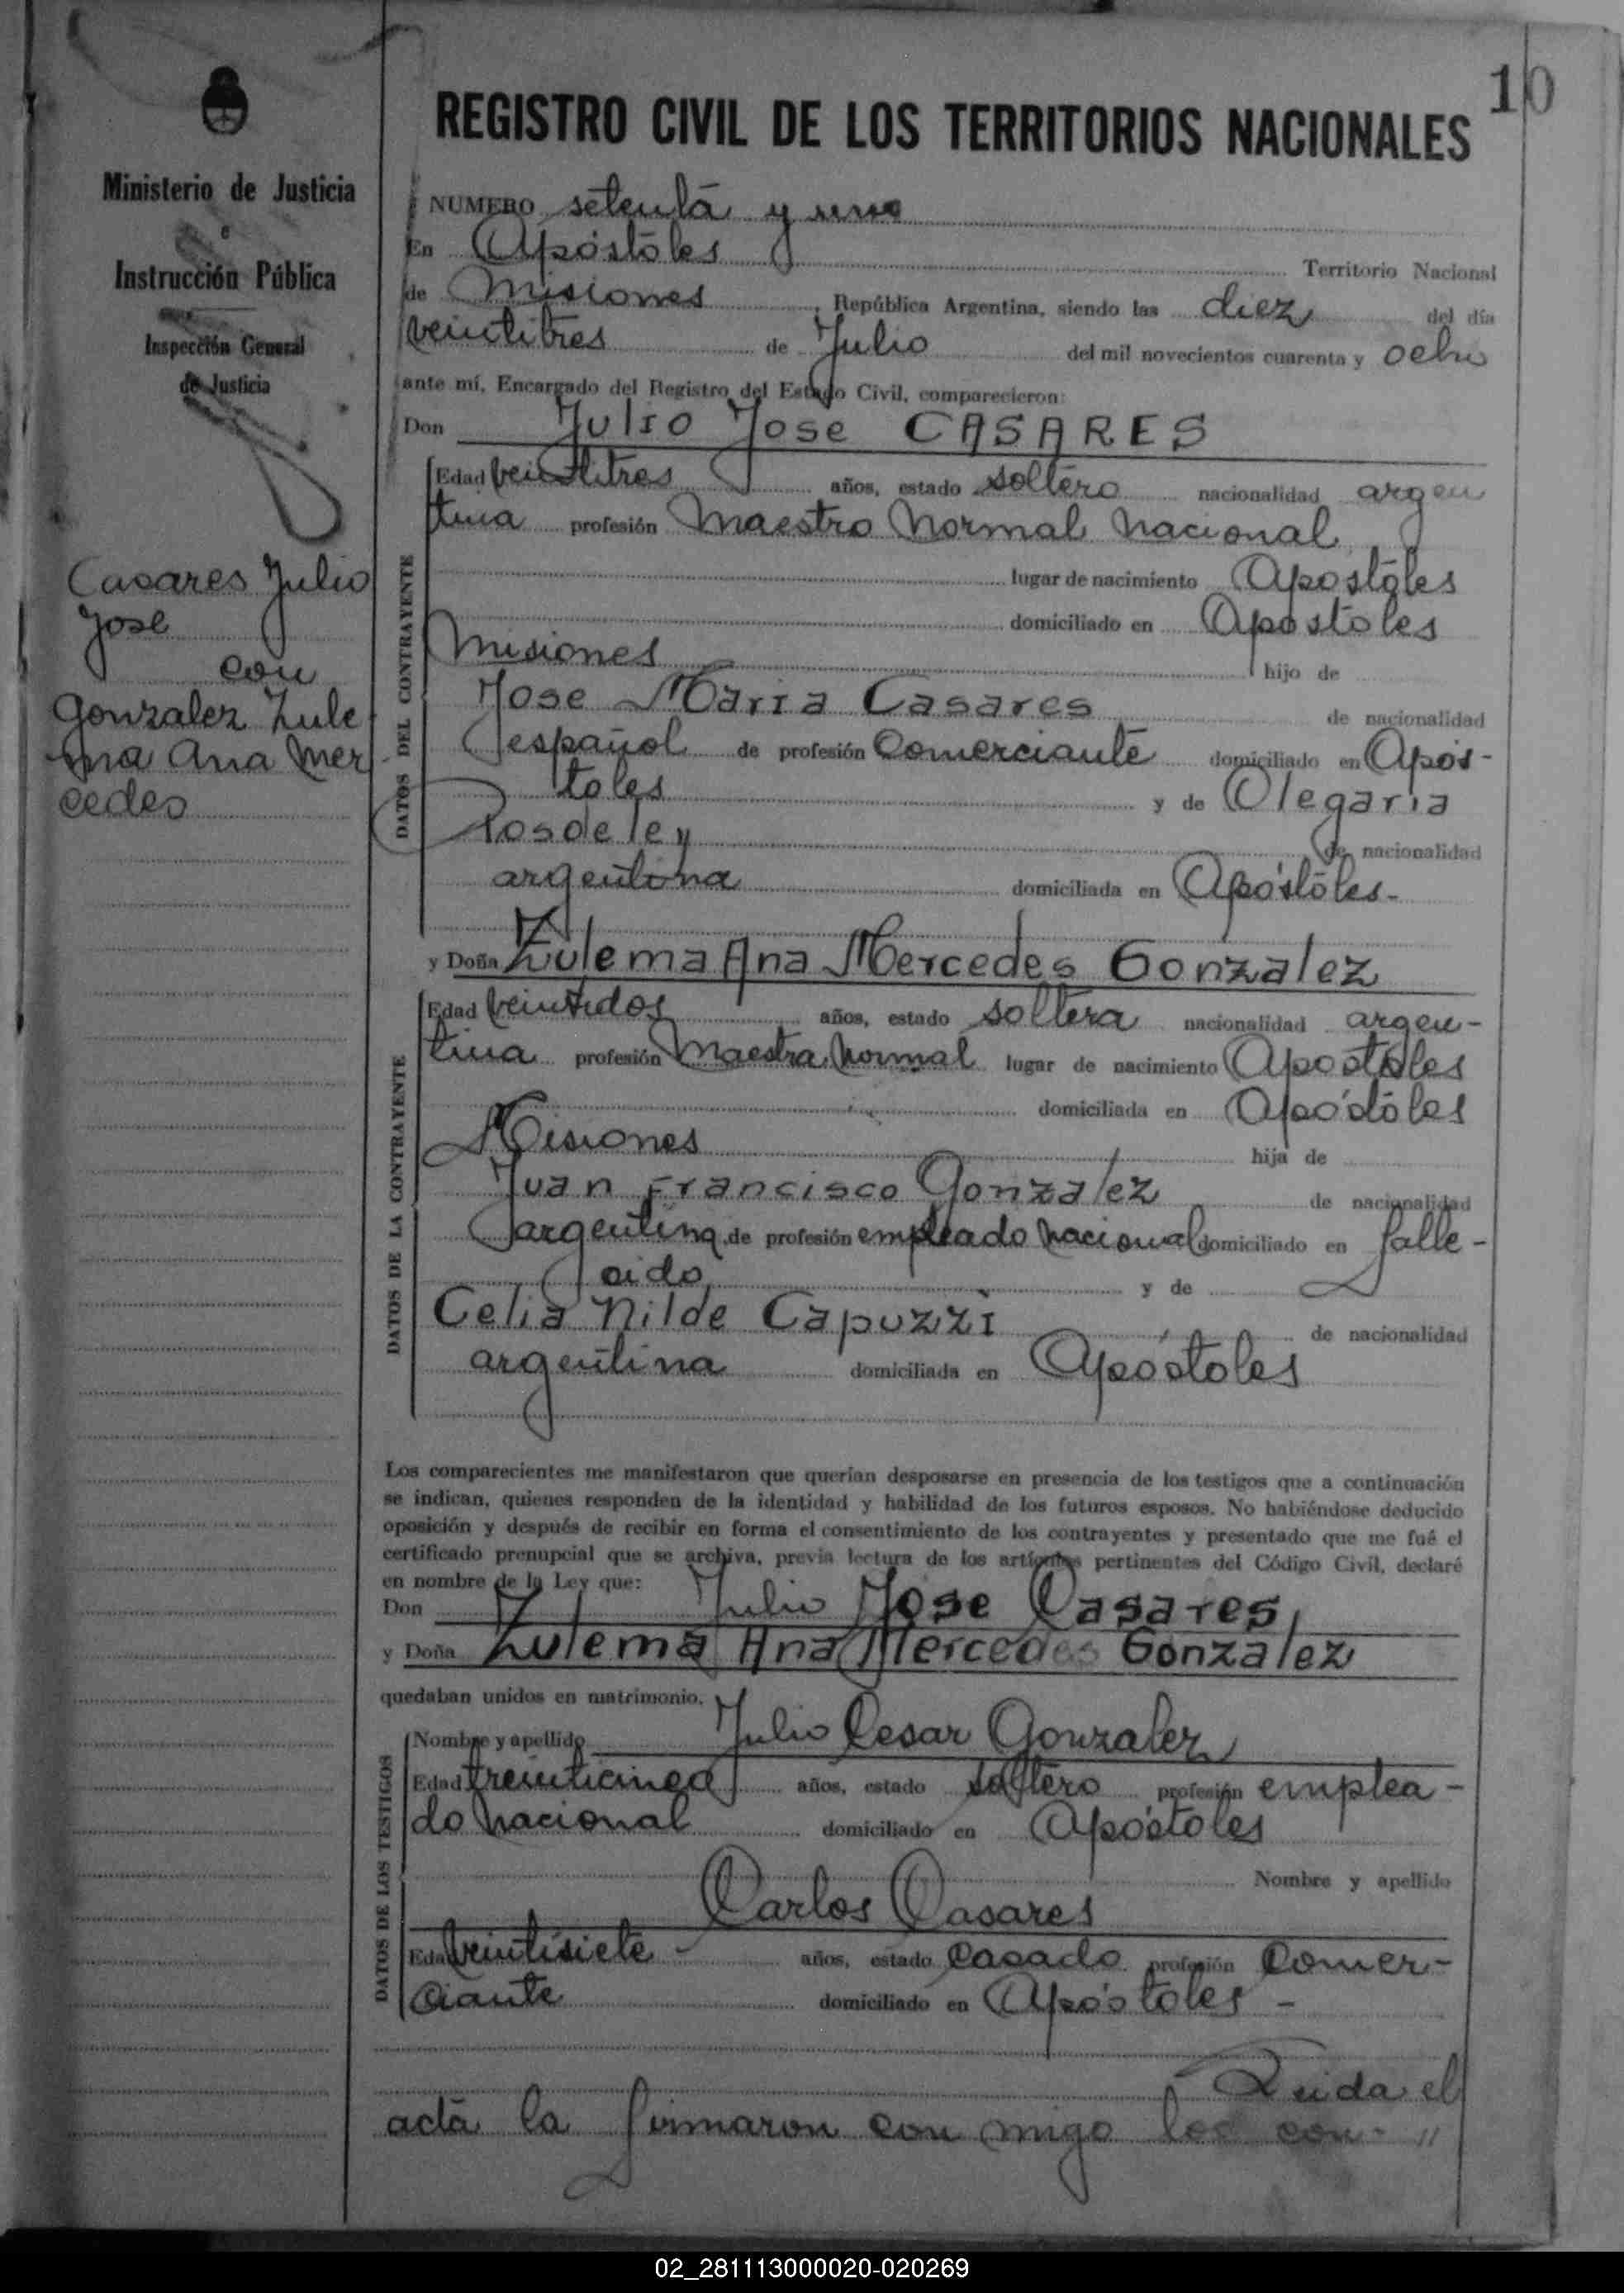 10
REGISTRO CIVIL DE LOS TERRITORIOS NACIONALES
Ministerio de Justicia
e
Instrucción Pública
Inspección General
de Justicia
Casares Julio
Jose
con
Gonzalez Zule
ma Ana Mer
cedes
NUMERO setenta y uno
En Apóstoles Territorio Nacional
de Misiones, República Argentina, siendo las diez del día
veintitres de Julio del mil novecientos cuarenta y ocho
ante mí, Encargado del Registro del Estado Civil, comparecieron:
Don Julio Jose CASARES
DATOS DEL CONTRAYENTE
Edad veintitres años, estado soltero nacionalidad argen
tina profesión Maestro Normal Nacional
lugar de nacimiento Apostoles
domiciliado en Apostoles
Misiones hijo de
Jose Maria Casares de nacionalidad
español de profesión Comerciante domiciliado en Após-
toles y de Olegaria
Posdeley de nacionalidad
argentina domiciliada en Apóstoles-
y Doña Zulema Ana Mercedes Gonzalez
DATOS DE LA CONTRAYENTE
Edad veintidos años, estado soltera nacionalidad argen-
tina profesión Maestra Normal lugar de nacimiento Apostoles
domiciliada en Apóstoles
Misiones hija de
Juan Francisco Gonzalez de nacionalidad
argentina de profesión empleado nacional domiciliado en falle-
cido y de
Celia Nilde Capuzzi de nacionalidad
argentina domiciliada en Apóstoles
Los comparecientes me manifestaron que querían desposarse en presencia de los testigos que a continuación
se indican, quienes responden de la identidad y habilidad de los futuros esposos. No habiéndose deducido
oposición y después de recibir en forma el consentimiento de los contrayentes y presentado que me fué el
certificado prenupcial que se archiva, previa lectura de los artículos pertinentes del Código Civil, declaré
en nombre de la Ley que:
Don Julio Jose Casares,
y Doña Zulema Ana Mercedes Gonzalez
quedaban unidos en matrimonio.
DATOS DE LOS TESTIGOS
Nombre y apellido Julio Cesar Gonzalez
Edad treinticinco años, estado soltero profesión emplea-
do nacional domiciliado en Apóstoles
Nombre y apellido
Carlos Casares
Edad veintisiete años, estado casado profesión comer-
ciante domiciliado en Apóstoles -
Leida el
acta la firmaron con migo los con- "
02_281113000020-020269